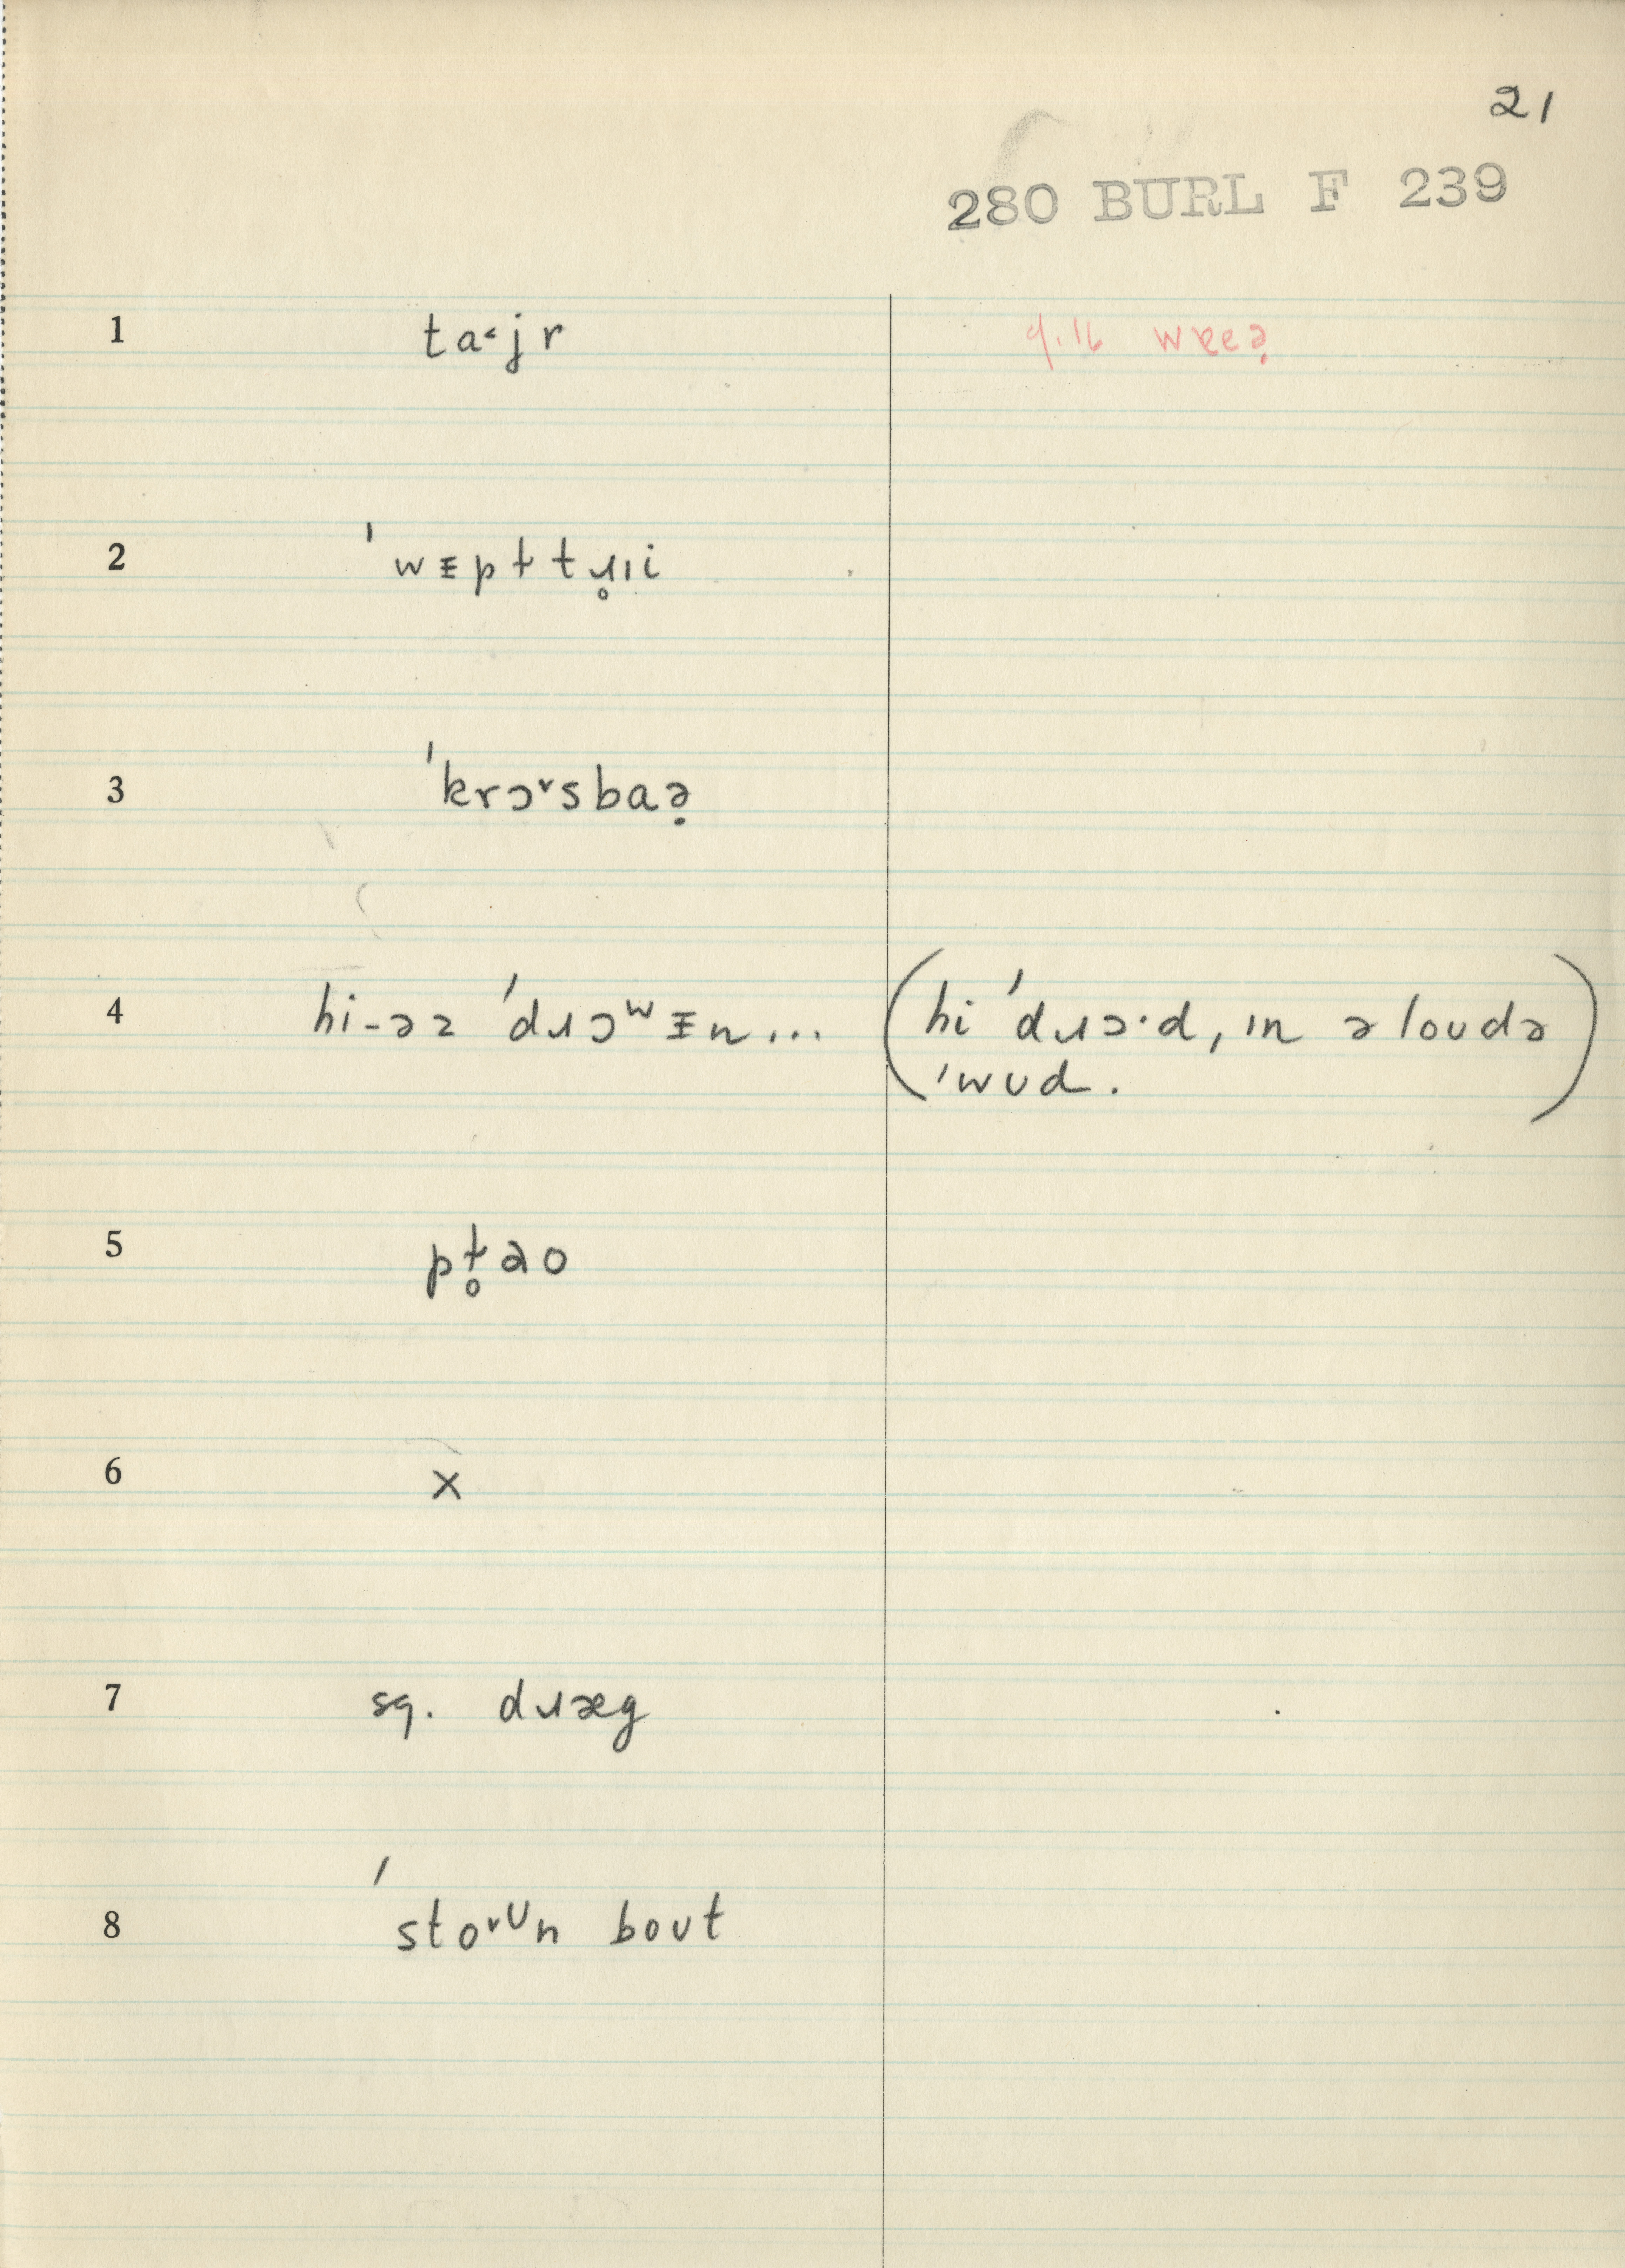 21
280 BURL F 239
1 ta˂jr 9.16 wɐeə̣
2 ˈwᵻpɫtɹ̥ɪi
3 ˈkrɔ˅sbaə̣
4 hi-əz ˈdɹɔʷᵻn... (hi ˈdɹɔ·d, ɪn ə loʊdə
ˈwʊd.)
5 pɫ̥ao
6 x
7 sq. dɹæg
8 ˈsto˅ᶷn boʊt